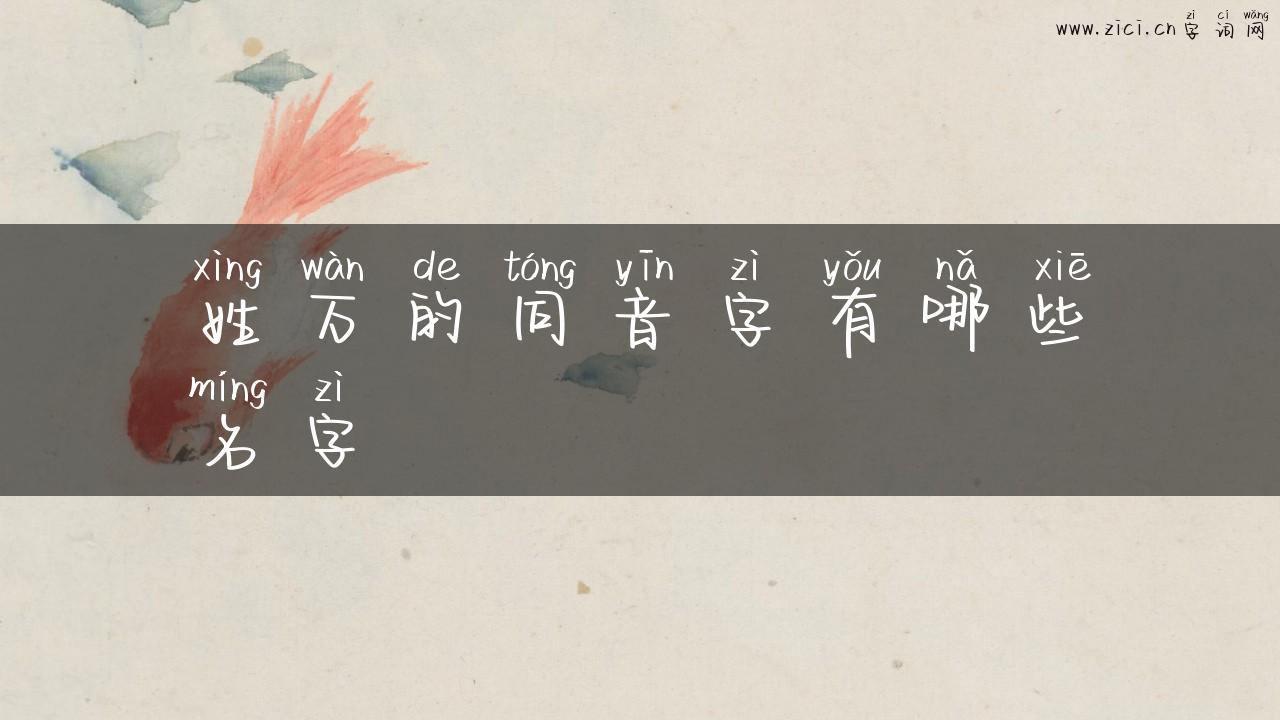 zì cí wǎng
www.zici.cn 字 词 网
xìng wàn de tóng yīn zì yǒu nǎ xiē
姓 万 的 同 音 字 有 哪 些
míng zì
名 字